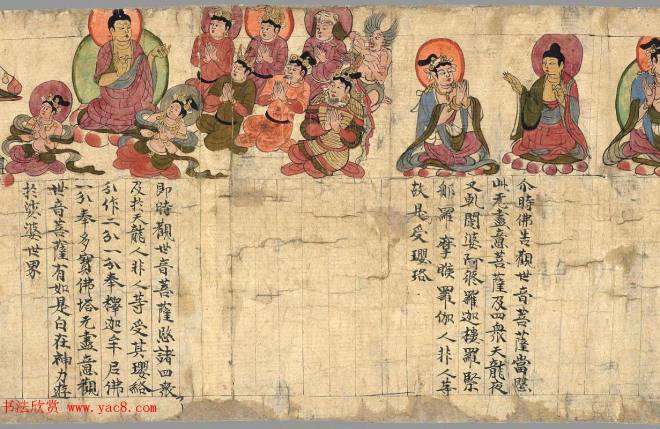 尒時佛告觀世音菩薩當愍
此无盡意菩薩及四衆天龍夜
叉乹闥婆阿脩羅迦樓羅緊
那羅摩睺羅伽人非人等
故是受瓔珞
即時觀世音菩薩愍諸四衆
及於天龍人非人等受其瓔珞
分作二分一分奉釋迦牟尼佛
一分奉多寶佛塔无盡意觀
世音菩薩有如是自在神力遊
於娑婆世界
书法欣赏 www.yac8.com